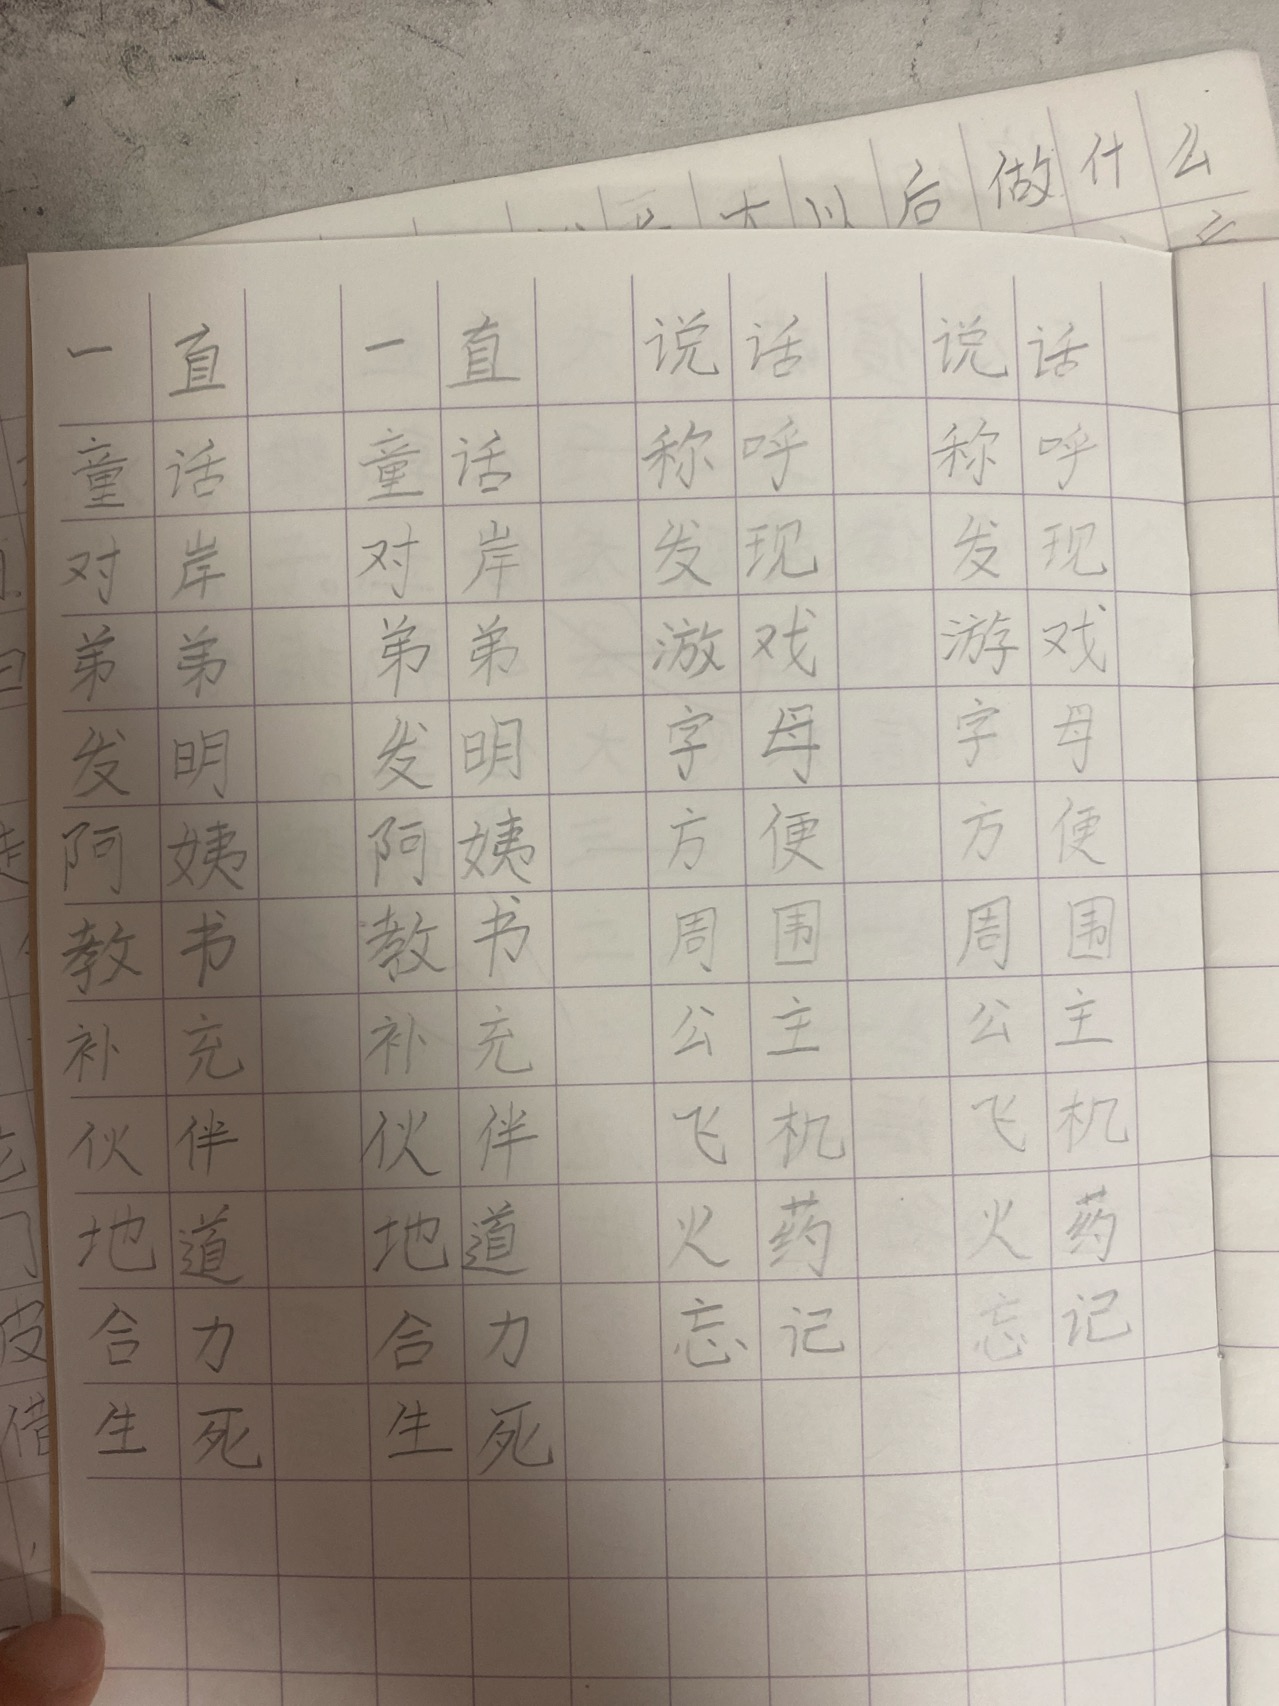 后做什么
一直 一直 说话 说话
童话 童话 称呼 称呼
对岸 对岸 发现 发现
弟弟 弟弟 游戏 游戏
发明 发明 字母 字母
阿姨 阿姨 方便 方便
教书 教书 周围 周围
补充 补充 公主 公主
伙伴 伙伴 飞机 飞机
地道 地道 火药 火药
合力 合力 忘记 忘记
生死 生死
皮
借